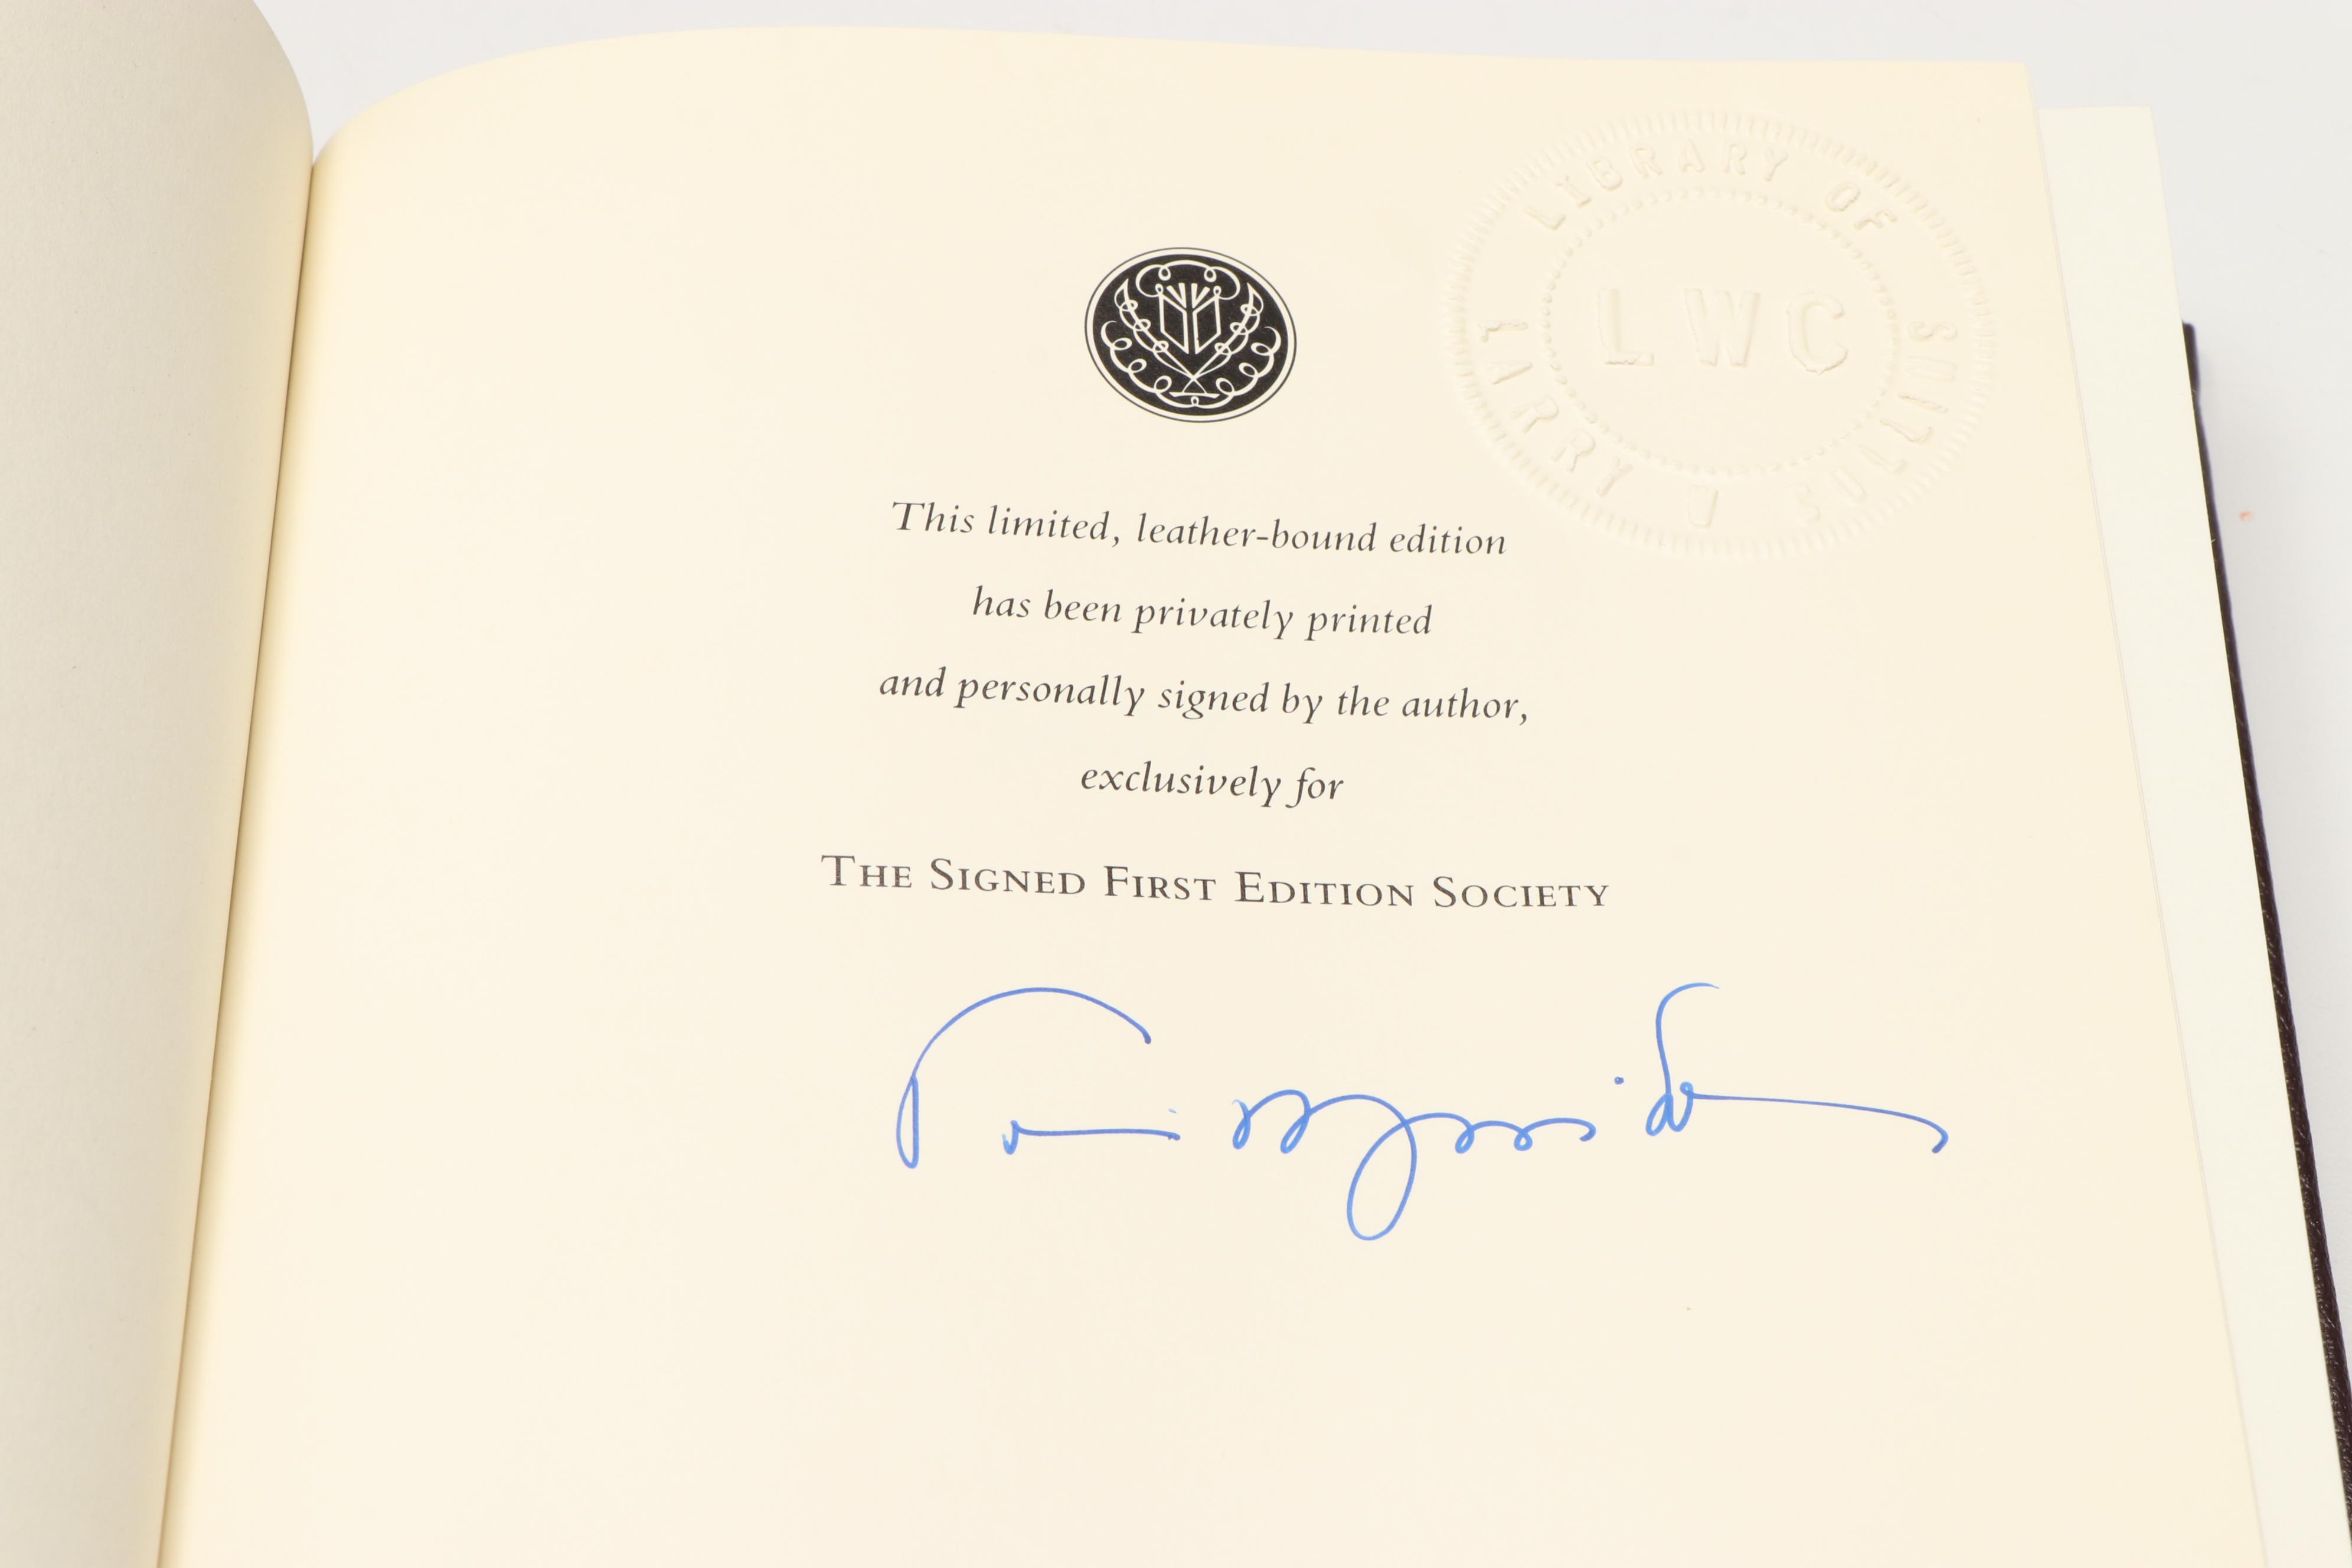 LIBRARY OF
LWC
LARRY W COLLINS
This limited, leather-bound edition
has been privately printed
and personally signed by the author,
exclusively for
THE SIGNED FIRST EDITION SOCIETY